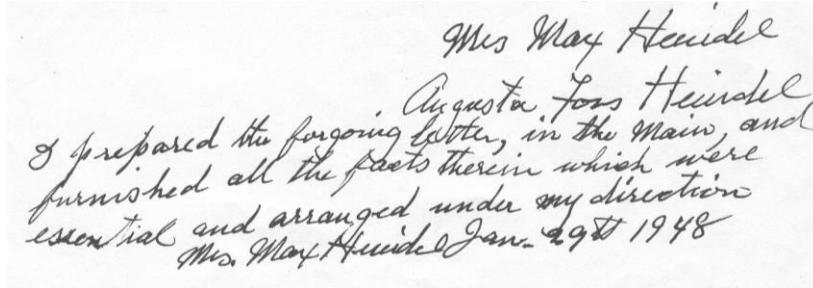 Mrs Max Heindel
Augusta Foss Heindel
I prepared the forgoing letter, in the main, and
furnished all the facts therein which were
essential and arranged under my direction
Mrs. Max Heindel Jan. 29th 1948